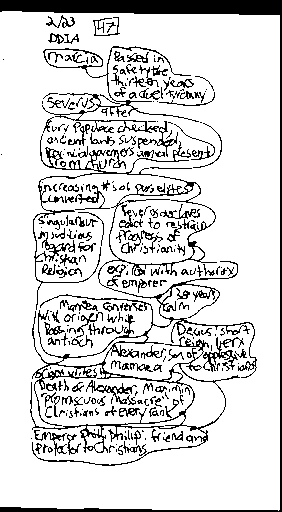 2/23 47
DDIA
Marcia
Passed in
safety the
thirteen years
of a cruel tyranny
Severus
after
fury populace checked
ancient laws suspended
Provincial governors annual present
from church
increasing #'s of
converted
Singular but
regard for
Christian
Religion
Severus
edict to restrain
Progress of
Christianity
with authority
of emperer
Mamea Converses
with origen while
Passing through
antioch
years
calm
Decius, short
reign, very
oppressive
to Christians
Alexander, son of
mamaea
Death of Alexander, Maximin
"Promiscuous Massacre" of
Christians of every rank
Emperor Philip: friend and
Protector to Christians